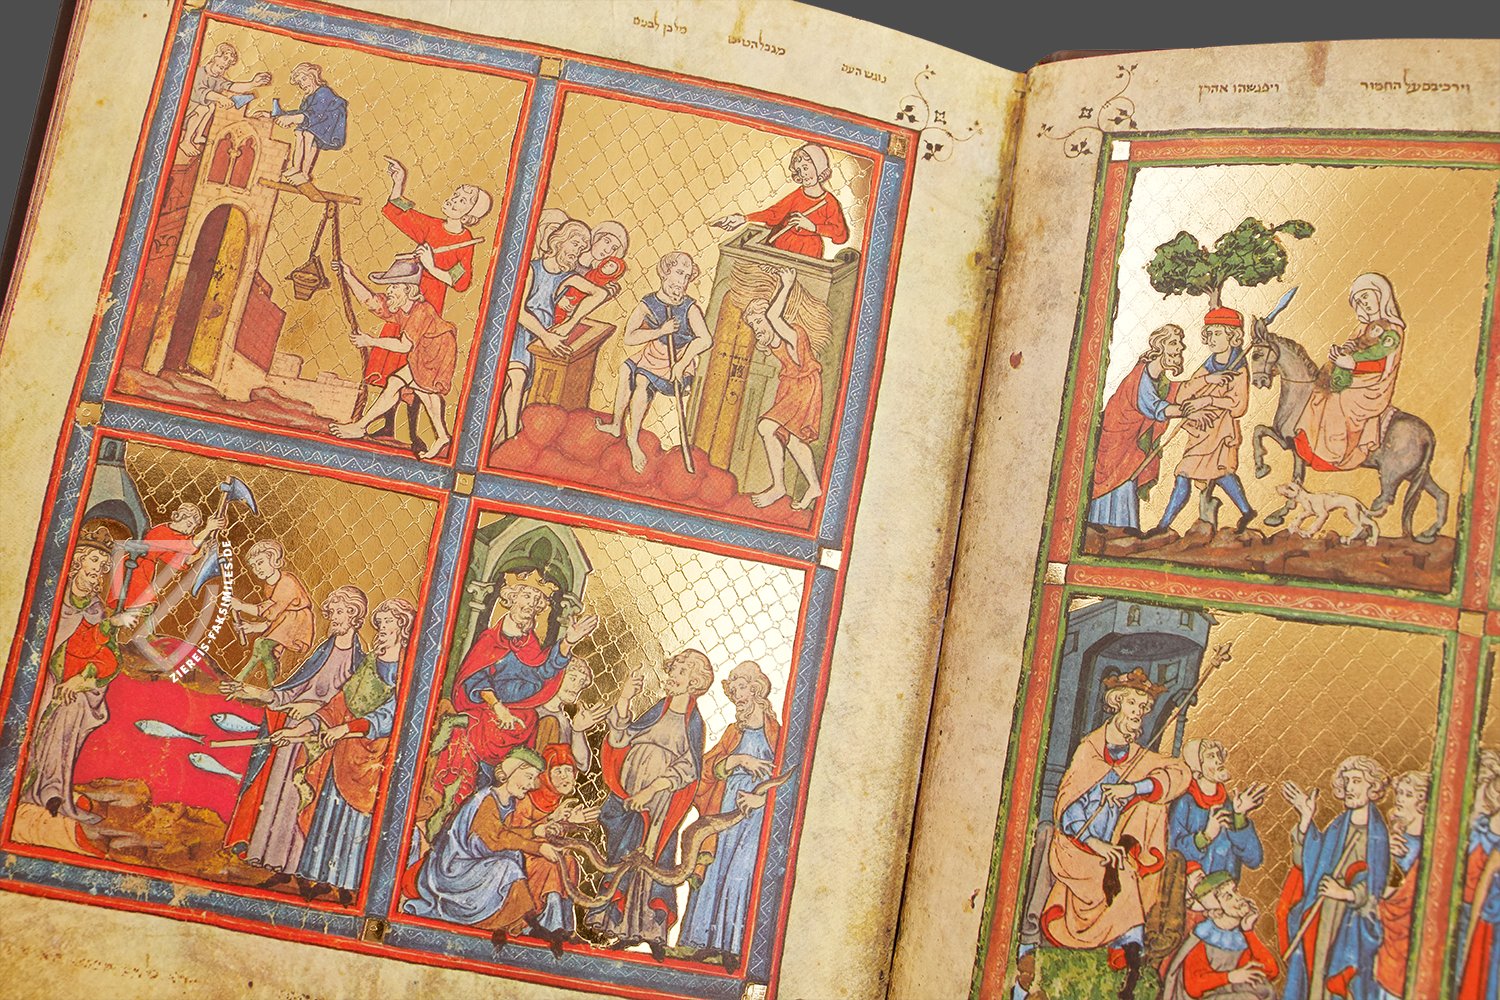 נוגש העם
מגבל הטיט
מלבן לבנים
וירכיבם על החמור
ויפגשהו אהרן
ZIEREIS-FAKSIMILES.DE